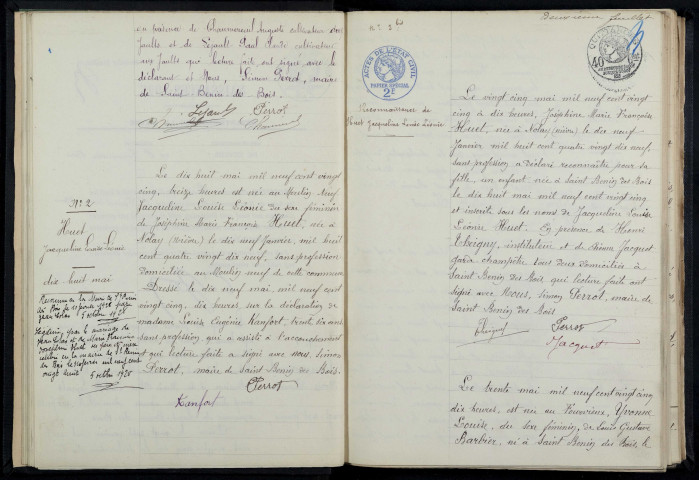 en présence de Chammerreul Auguste cultivateur aux
faulle et de Lépault Paul Louis cultivateur
aux faulle qui lecture fait, ont signé avec le
déclarant et Nous, Simon Perrot, maire
de Saint Benin des Bois.
Perrot
N° 2
Huet
Jacqueline Louise Léonie
dix huit mai
5 octobre 1928
Légitimée par le mariage de
célébré en la mairie de St Benin
des Bois
vingt huit 5 octobre 1928
Le dix huit mai mil neuf cent vingt
cinq, treize heures est née au Moulin neuf
Jacqueline Louise Léonie du sexe féminin
de Joséphine Marie Françoise Huet, née à
Nolay (nièvre) le dix neuf Janvier, mil huit
cent quatre vingt dix neuf, sans profession
domiciliée au Moulin neuf de cette commune
Dressé le dix neuf mai, mil neuf cent vingt
cinq, dix heures, sur la déclaration de
madame Louise Eugénie Kanfort, trente six ans
sans profession qui a assisté à l'accouchement
et qui lecture faite a signé avec nous, Simon
Perrot, maire de Saint Benin des Bois.
Perrot
Kanfort
Deuxième feuillet
N° 3 bis
ACTES DE L'ETAT CIVIL
PAPIER SPÉCIAL
2F
40
Reconnaissance de
Huet Jacqueline Louise Léonie
Le vingt cinq mai mil neuf cent vingt
cinq à dix heures, Joséphine Marie Françoise
Huet, née à Nolay (nièvre) le dix neuf
Janvier mil huit cent quatre vingt dix neuf,
sans profession a déclaré reconnaître pour sa
fille, un enfant née à Saint Benin des Bois
le dix huit mai mil neuf cent vingt cinq
et inscrit sous les noms de Jacqueline Louise
Léonie Huet. En présence de Henri
Thévigny, instituteur et de Jacquot
garde champêtre tous deux domiciliés à
Saint Benin des Bois qui lecture faite ont
signé avec Nous, Simon Perrot, maire de
Saint Benin des Bois
Perrot
Jacquot
Le trente mai mil neuf cent vingt cinq
dix heures, est née au Yvonne
Louise, du sexe féminin, de Louis Gustave
Barbier, né à Saint Benin des Bois, le